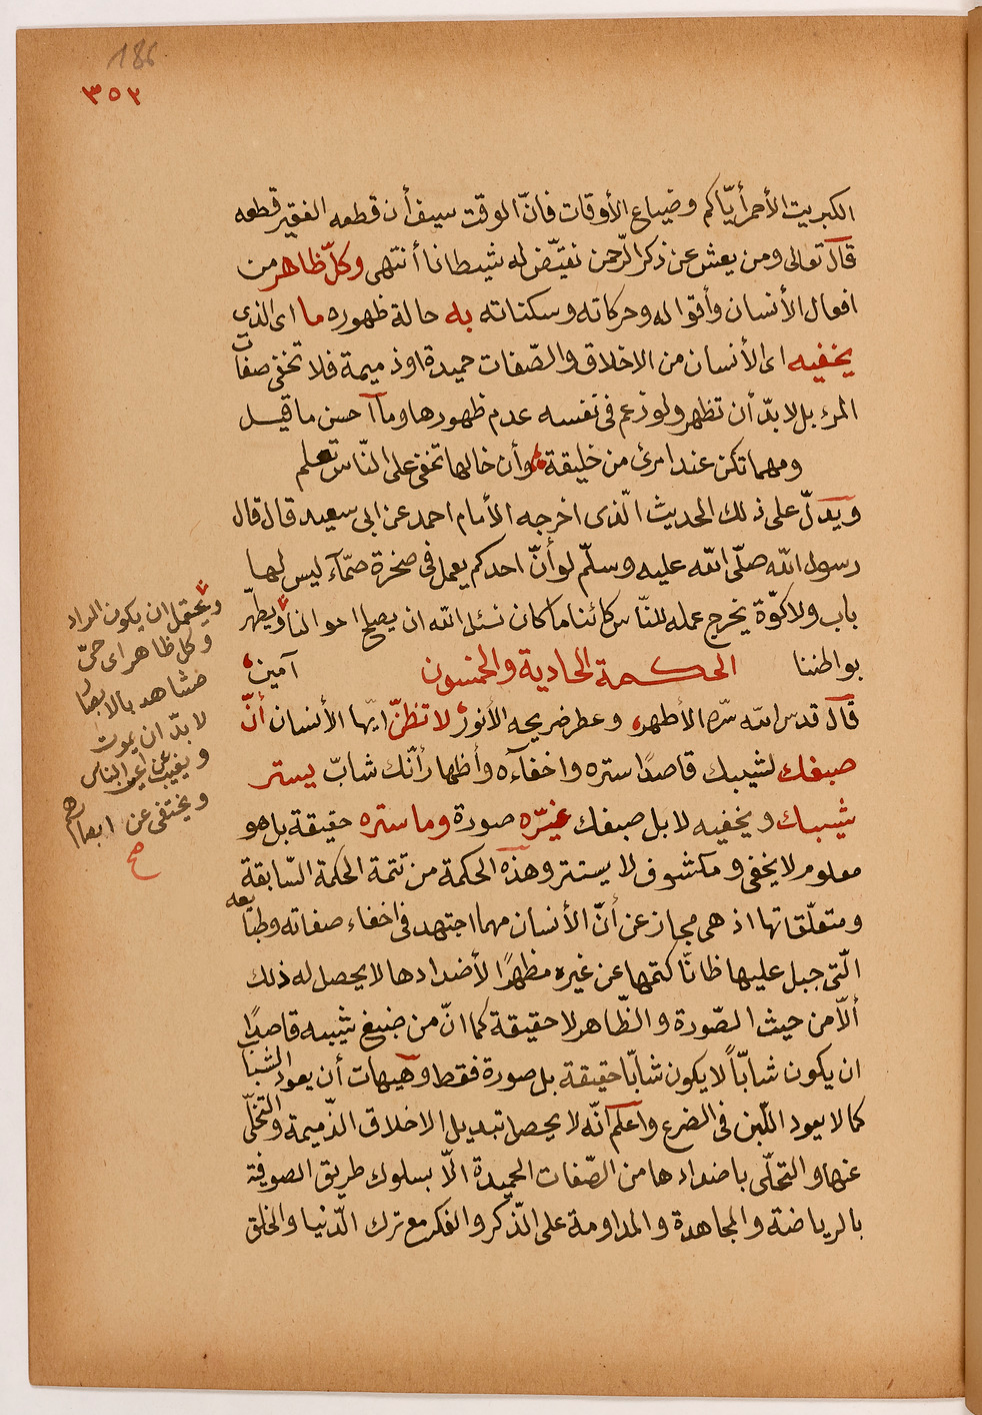 186
٣٥٢
الكبريت الأحمر أيّاكم وضياع الأوقات فانّ الوقت سيف أن قطعه الفقير قطعه
قال تعالى ومن يعش عن ذكر الرّحمن نقيّض له شيطانا أنتهى وكلّ ظاهر من
افعال الأنسان وأقواله وحركاته وسكناته به حالة ظهوره ما اى الذى
يخفيه اى الأنسان من الاخلاق والصّفات حميدة او ذميمة فلا تخفى صفات
المرء بل لا بدّ أن تظهر ولو زعم فى نفسه عدم ظهورها وما أحسن ما قيل
ومهما تكن عند امرئ من خليقة وأن خالها تخفى على النّاس تعلم
ويدلّ على ذلك الحديث الّذى اخرجه الأمام احمد عن ابى سعيد قال قال
رسول الله صلّى الله عليه وسلّم لو أنّ احدكم يعمل فى صخرة صمّآء ليس لها
باب ولا كوّة يخرج عمله للنّاس كائنا ما كان نسئل الله ان يصلح احوالنا ويطهّر
بواطننا الحكمة الحادية والخمسون آمين
قال قدس الله سّره الأطهر وعطر ضريحه الأنور لا تظنّ ايّها الأنسان أنّ
صبغك لشيبك قاصدًا ستره واخفآءه وأظهار أنّك شابّ يستر
شيبك ويخفيه لا بل صبغك غيّره صورة وما ستره حقيقة بل هو
معلوم لا يخفى ومكشوف لا يستتر وهذه الحكمة من تتمة الحكمة السّابقة
ومتعلّقاتها اذ هى مجاز عن أنّ الأنسان مهما اجتهد فى اخفاء صفاته وطبايعه
الّتى جبل عليها ظانّا كتمها عن غيره مظهرًا لأضدادها لا يحصل له ذلك
ألاّ من حيث الصّورة والظّاهر لا حقيقة كما انّ من صبغ شيبه قاصدًا
ان يكون شابّاً لا يكون شابّا حقيقة بل صورة فقط وهيهات أن يعود الشباب
كما لا يعود اللّبن فى الضرع وأعلم انّه لا يحصل تبديل الاخلاق الذّميمة والتخلّى
عنها والتحلّى باضدادها من الصّفات الحميدة الّا بسلوك طريق الصوفية
بالرياضة والمجاهدة والمداومة على الذّكر والفكر مع ترك الدّنيا والخلق
ويحتمل ان يكون المراد
وكل ظاهر اى حىّ
مشاهد بالابصار
لا بدّ ان يموت
ويغيب عن اعين الناس
ويختفى عن ابصارهم
صح